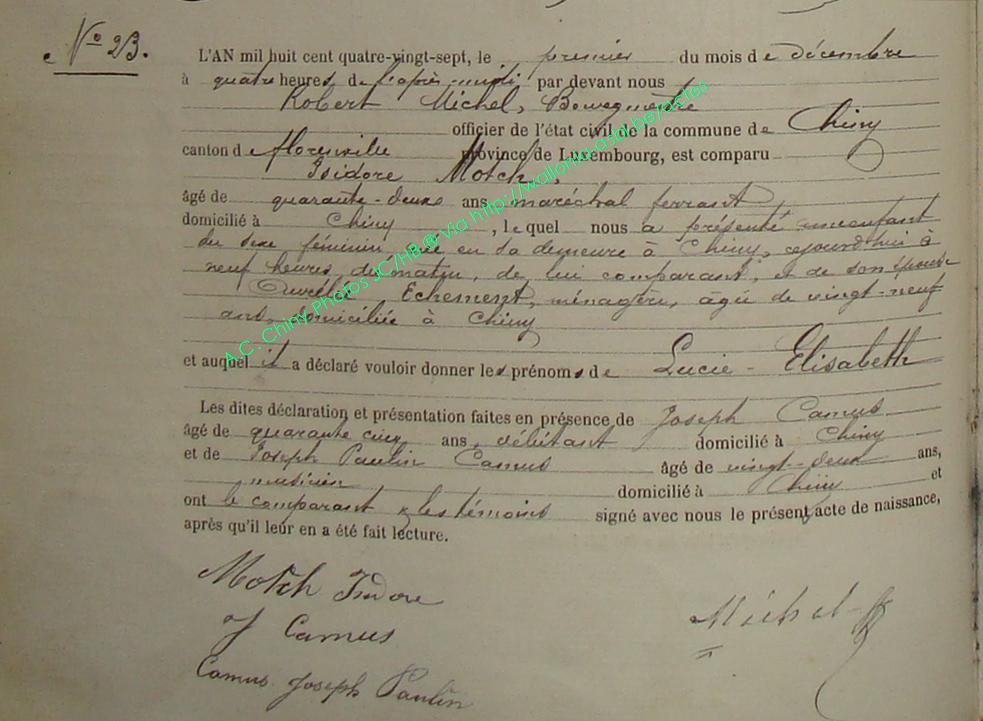 N° 23.
L'AN mil huit cent quatre-vingt-sept, le premier du mois de décembre
à quatre heures de l'après-midi par devant nous
Robert Michel, Bourgmestre
officier de l'état civil de la commune de Chiny
canton de Florenville province de Luxembourg, est comparu
Isidore Motch,
âgé de quarante-deux ans maréchal ferrant
domicilié à Chiny, lequel nous a présenté un enfant
du sexe féminin, née en sa demeure à Chiny, cejourd'hui à
neuf heures du matin, de lui comparant, et de son épouse
Aurélie Echement, ménagère, âgée de vingt-neuf
ans, domiciliée à Chiny
et auquel il a déclaré vouloir donner les prénoms de Lucie-Elisabeth
Les dites déclaration et présentation faites en présence de Joseph Camus
âgé de quarante cinq ans, débitant domicilié à Chiny
et de Joseph Paulin Camus âgé de vingt-deux ans,
musicien domicilié à Chiny et
ont le comparant & les témoins signé avec nous le présent acte de naissance,
après qu'il leur en a été fait lecture.
Motch Isidore
J Camus
Camus Joseph Paulin
Michel
A.C. Chiny Photos JC/HB ® via http://wallonia-asbl.be/actes